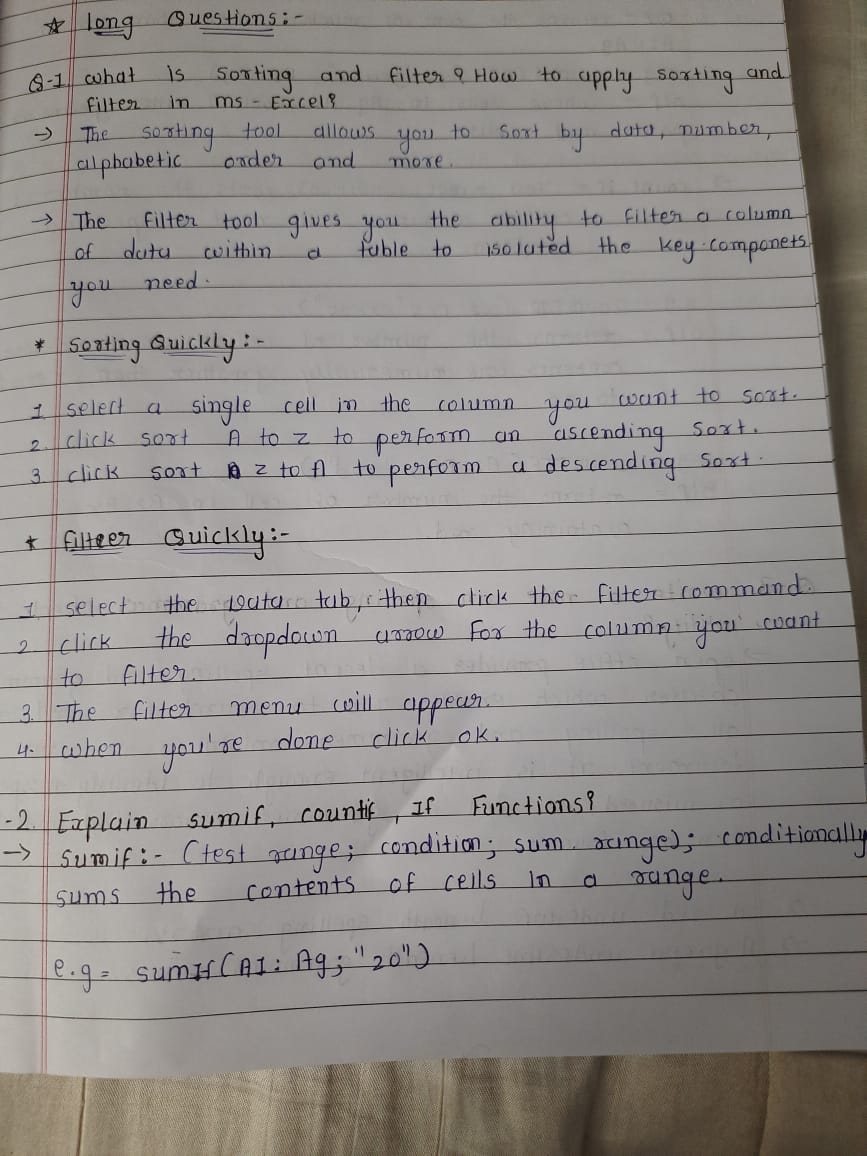 ☆ long Questions:-
Q-1 what is sorting and filter? How to apply sorting and
filter in ms-Excel?
→ The sorting tool allows you to sort by data, number,
alphabetic order and more.
→ The filter tool gives you the ability to filter a column
of data within a table to isolated the key componets
you need.
* Sorting Quickly:-
1. select a single cell in the column you want to sort.
2. click sort A to z to perform an ascending sort.
3. click sort z to A to perform a descending sort.
* filteer Quickly:-
1. select the Data tab, then click the filter command.
2. click the dropdown arrow For the column you want
to filter.
3. The filter menu will appear.
4. when you're done click ok.
-2. Explain sumif, countif, If Functions?
→ sumif:- (test range; condition; sum range); conditionally
sums the contents of cells in a range.
e.g = sumIf(A1:Ag;"20")